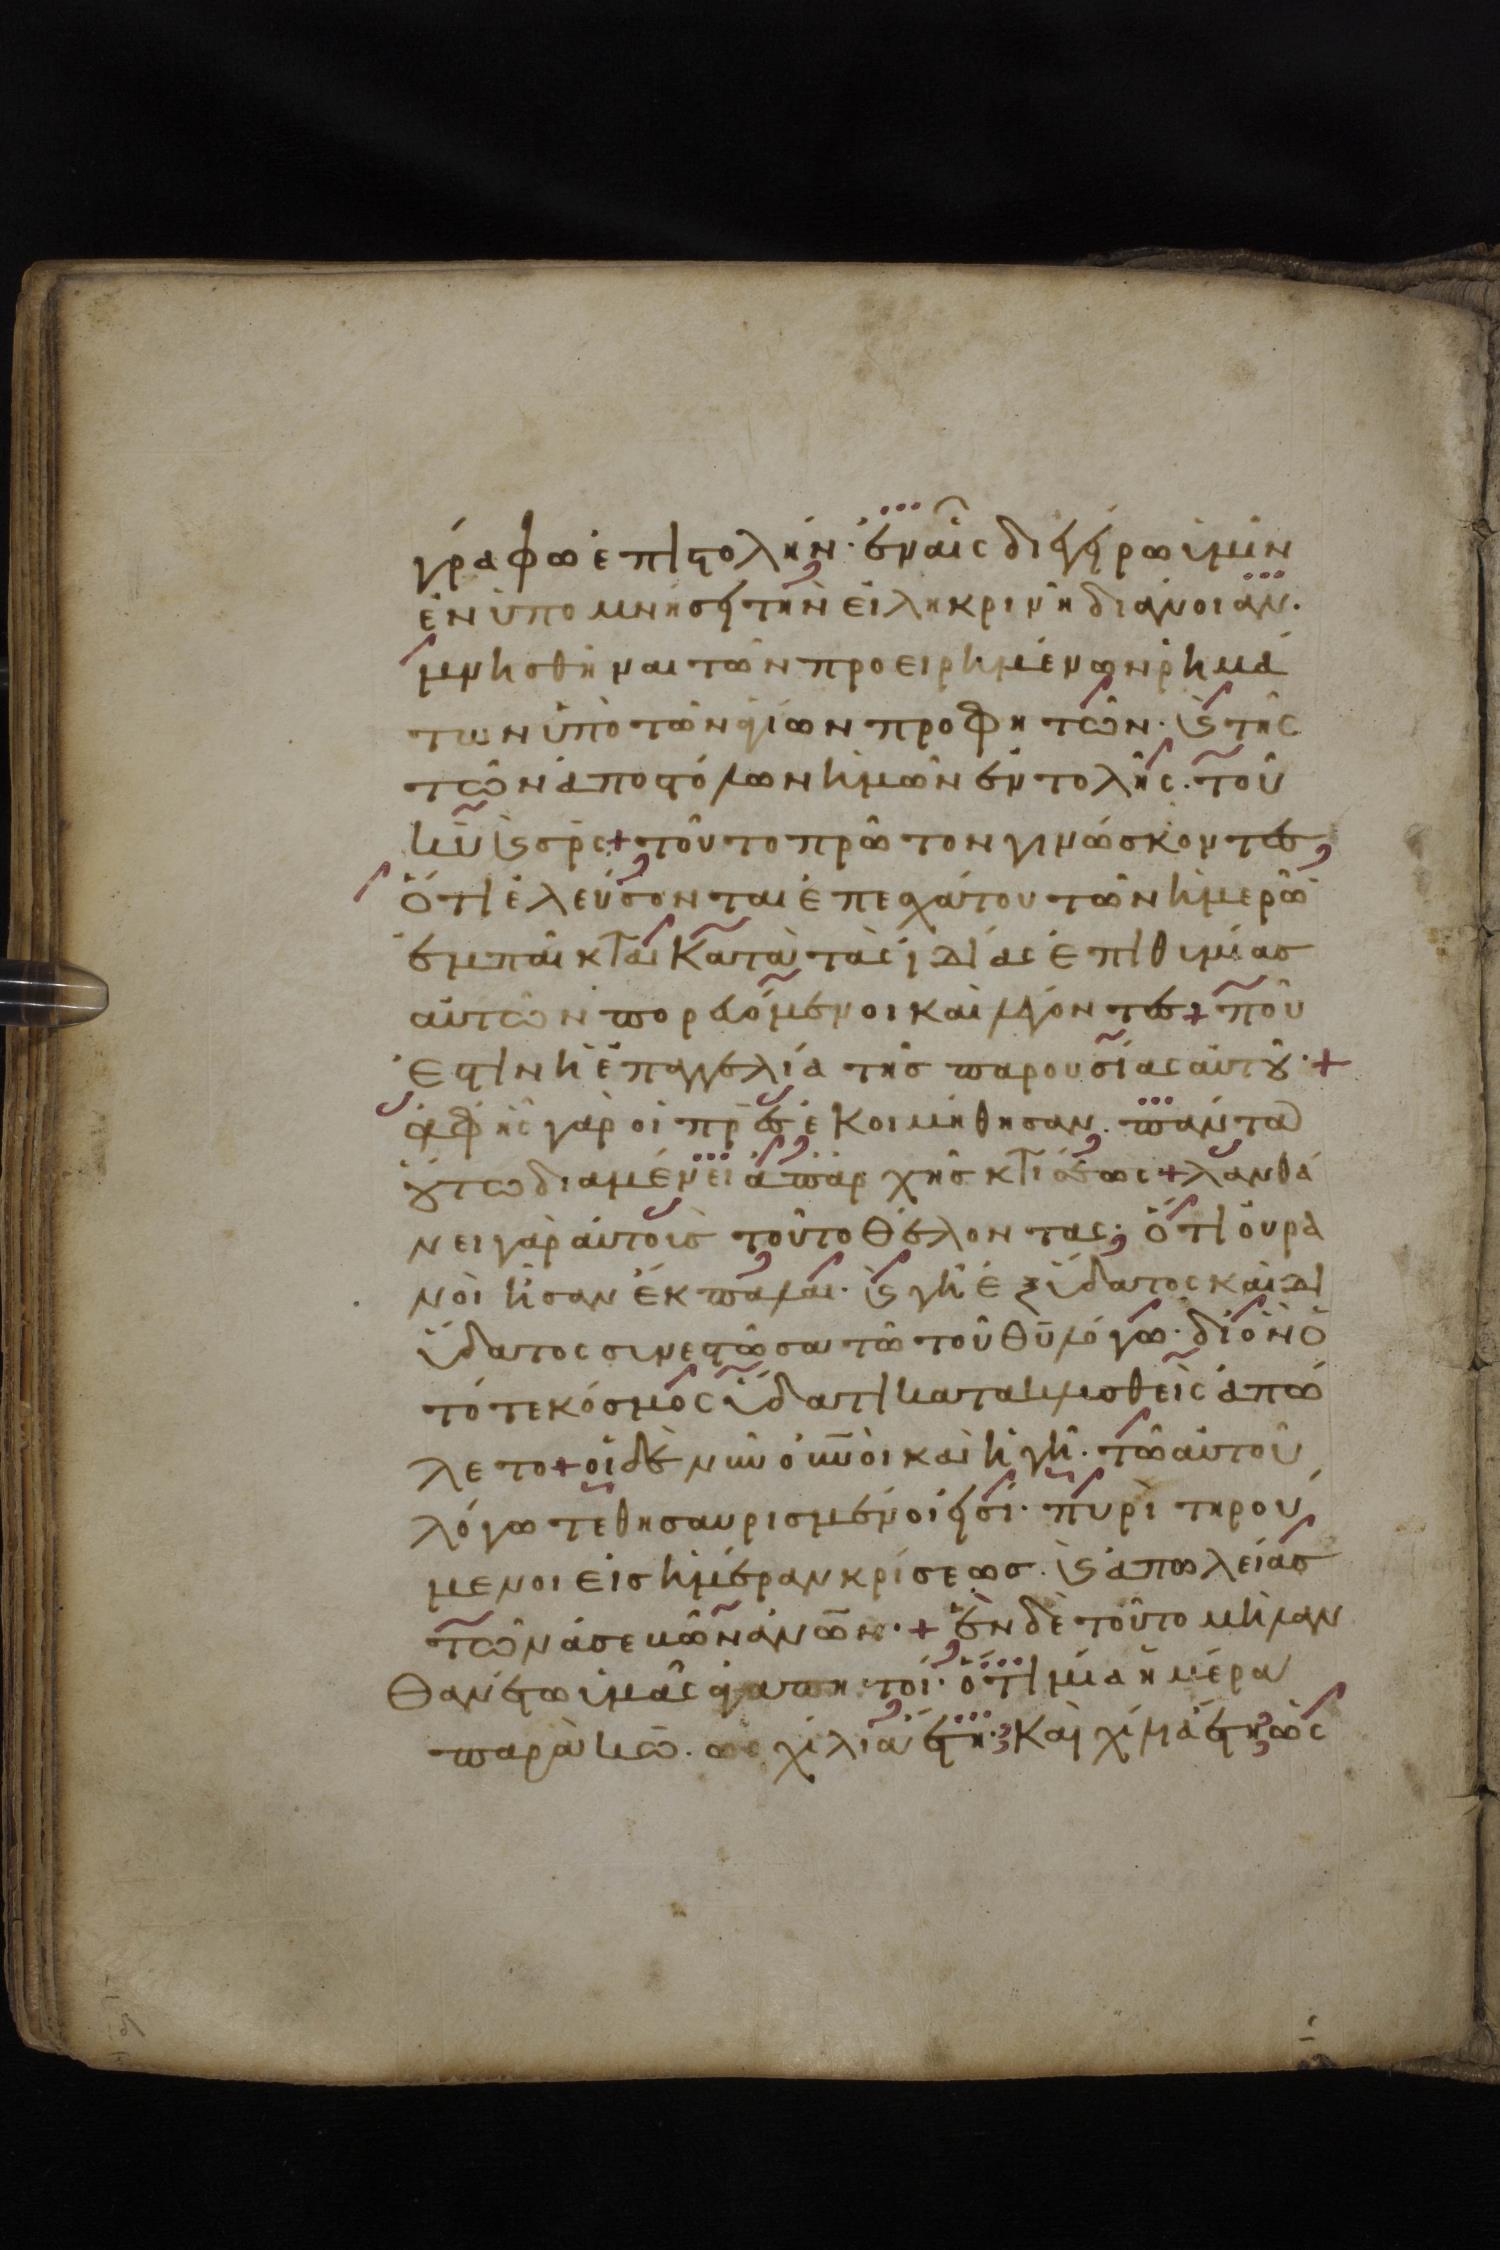 γράφω ἐπιστολήν· ἐν αἷς διεγείρω ὑμῶν
ἐν ὑπομνήσει τὴν εἰληκρινῆ διάνοιαν·
μνησθῆναι τῶν προειρημένων ῥημά
των ὑπὸ τῶν ἁγίων προφητῶν· ϗ τῆς
τῶν ἀποστόλων ἡμῶν ἐντολῆς· τοῦ
κ̅υ̅ ϗ σ̅ρ̅ς + τοῦτο πρῶτον γινώσκοντες,
ὅτι ἐλεύσονται ἐπ ἐσχάτου τῶν ἡμερῶ
ἐμπαῖκται κατὰ τὰς ἰδίας ἐπιθυμίας
αὐτῶν πορευόμενοι καὶ λέγοντες + ποῦ
ἐστὶν ἡ ἐπαγγελία τῆς παρουσίας αὐτοῦ· +
ἀφ ἧς γὰρ οἱ π̅ρ̅ες ἐκοιμήθησαν· πάντα
οὕτω διαμένει ἀπ ἀρχῆς κτίσεως + λανθά
νει γὰρ αὐτοὺς τοῦτο θέλοντας, ὅτι οὐρα
νοὶ ἦσαν ἔκπαλαι· ϗ γῆ ἐξ ὕδατος καὶ δι
ὕδατος συνεστῶσα τῶ τοῦ θ̅υ̅ λόγω· δι ὃν ὁ
τότε κόσμος ὕδατι κατακλυσθεὶς ἀπώ
λετο + οἱ δὲ νῦν ο̅υ̅νοὶ καὶ ἡ γῆ· τῶ αὐτοῦ
λόγω τεθησαυρισμένοι εἰσί· πυρὶ τηρού
μενοι εἰς ἡμέραν κρίσεως· ϗ ἀπωλείας
τῶν ἀσεβῶν ἀ̅ν̅ω̅ν· + ἓν δὲ τοῦτο μὴ λαν
θανέτω ὑμᾶς ἀγαπητοί· ὅτι μία ἡμέρα
παρὰ κ̅ω̅· ὡς χίλια ἔτη· καὶ χίλια ἔτη ὡς